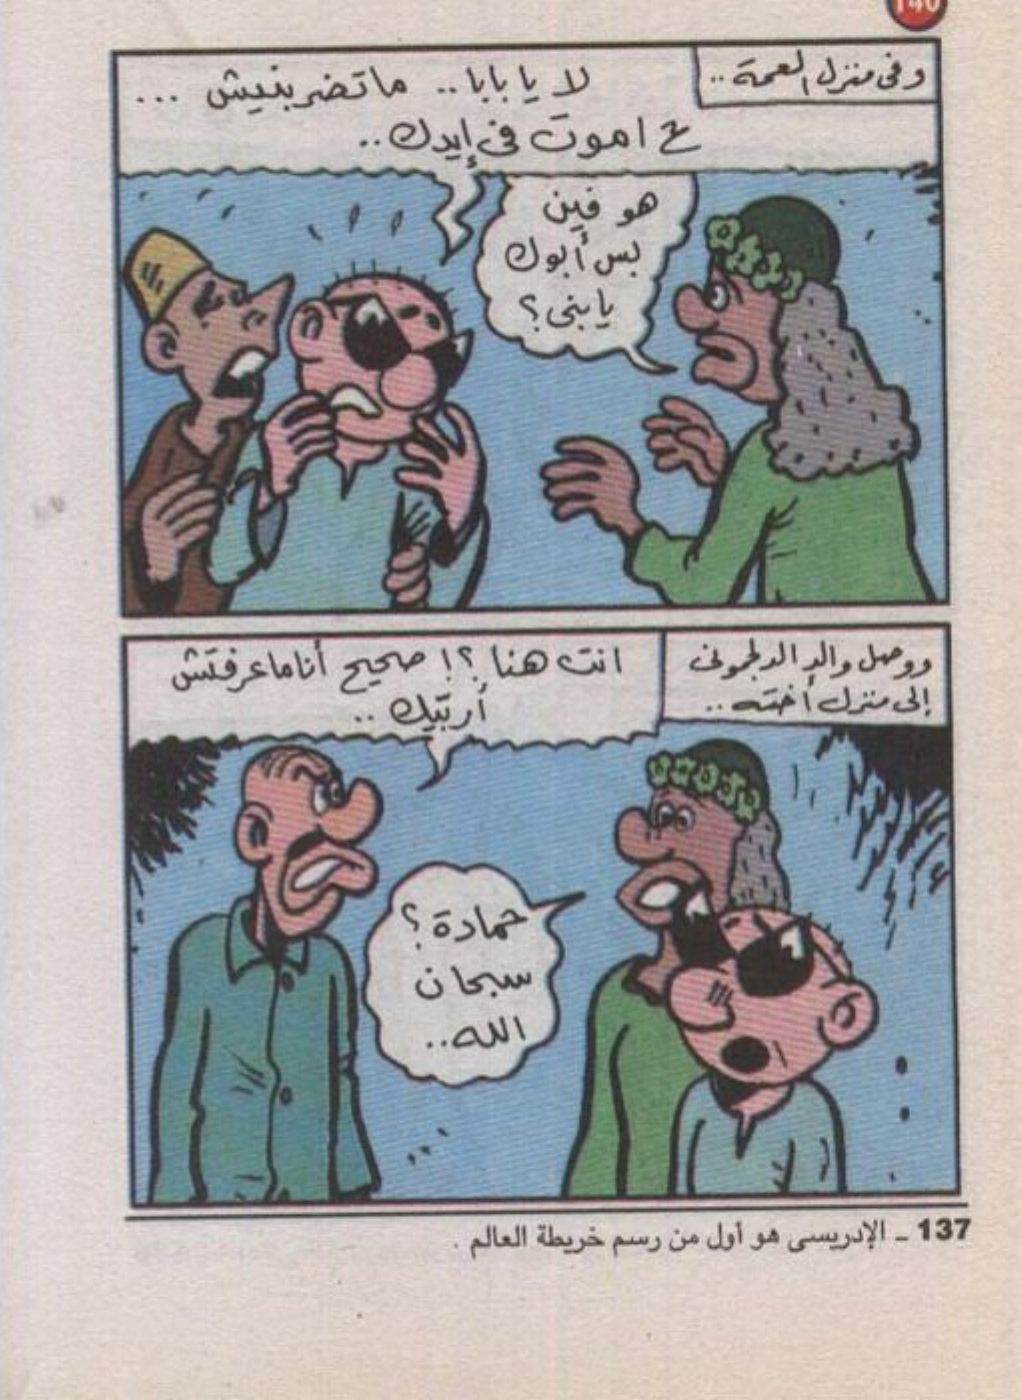 140
وفى منزل العمة ..
لا يا بابا .. ماتضربنيش ...
ح اموت فى إيدك ..
هو فين
بس أبوك
يابنى ؟
ووصل والد الدلجموني
إلى منزل أخته ..
انت هنا ؟! صحيح أنا ماعرفتش
أربّيك ..
حمادة ؟
سبحان
الله ..
137 ـ الإدريسى هو أول من رسم خريطة العالم .